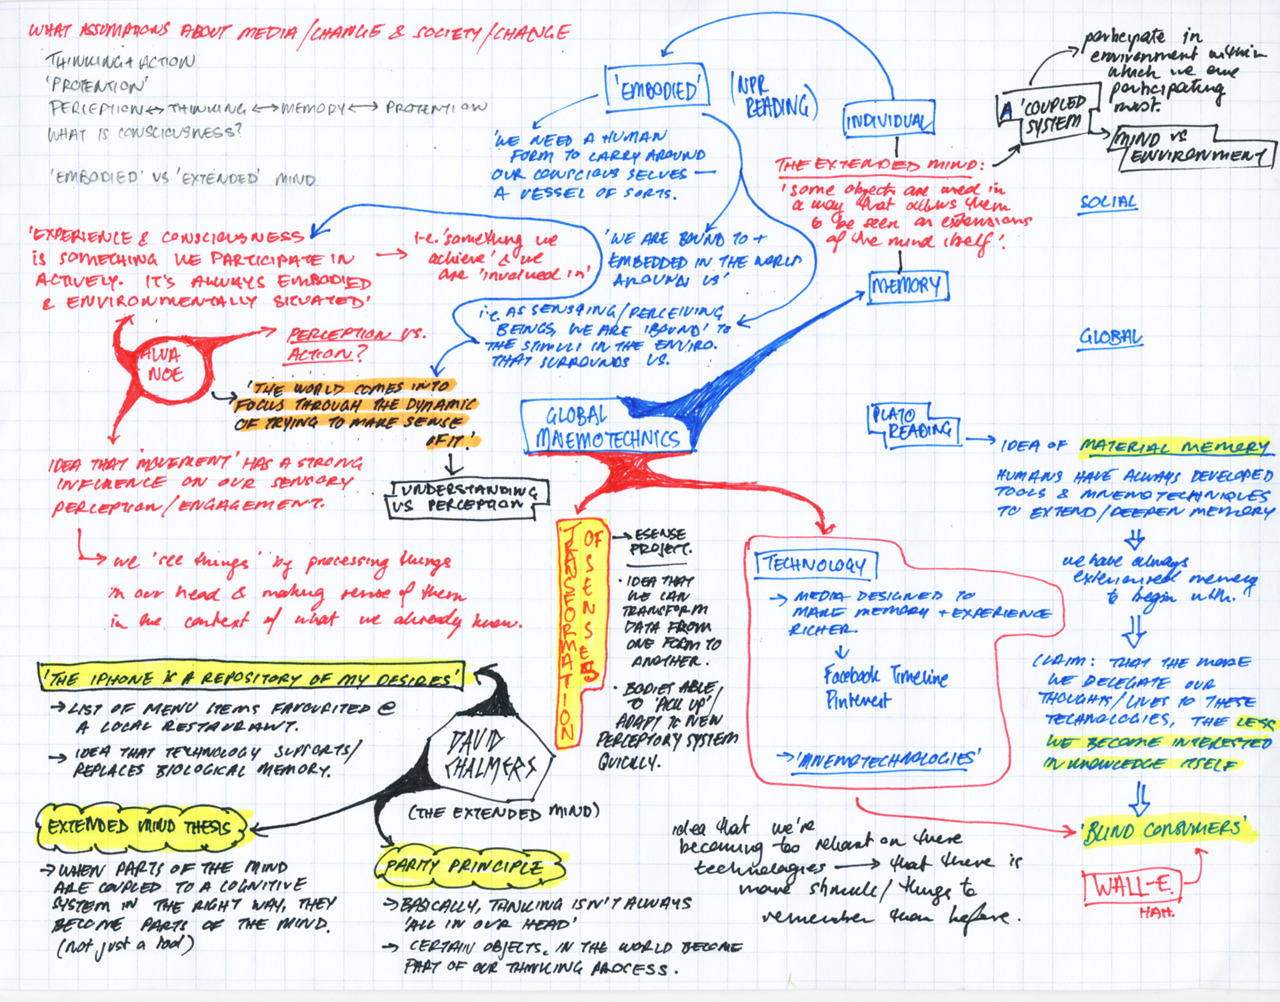 WHAT ASSUMPTIONS ABOUT MEDIA/CHANGE & SOCIETY/CHANGE
THINKING + ACTION
'PROTENTION'
PERCEPTION ↔ THINKING ↔ MEMORY ↔ PROTENTION
WHAT IS CONSCIOUSNESS?
'EMBODIED' VS 'EXTENDED' MIND
'EMBODIED'
(NPR
READING)
'WE NEED A HUMAN
FORM TO CARRY AROUND
OUR CONSCIOUS SELVES —
A VESSEL OF SORTS.
INDIVIDUAL
THE EXTENDED MIND:
'some objects are used in
a way that allows them
to be seen as extensions
of the mind itself'.
MEMORY
A 'COUPLED
SYSTEM
participate in
environment within
which we are
participating
most.
MIND VS
ENVIRONMENT
SOCIAL
GLOBAL
'EXPERIENCE & CONSCIOUSNESS
IS SOMETHING WE PARTICIPATE IN
ACTIVELY. IT'S ALWAYS EMBODIED
& ENVIRONMENTALLY SITUATED'
i.e. 'something we
achieve' & we
are 'involved in'
'WE ARE BOUND TO +
EMBEDDED IN THE WORLD
AROUND US'
i.e. AS SENSING/PERCEIVING
BEINGS, WE ARE 'BOUND' TO
THE STIMULI IN THE ENVIRO.
THAT SURROUNDS US.
ALVA
NOE
PERCEPTION VS.
ACTION?
'THE WORLD COMES INTO
FOCUS THROUGH THE DYNAMIC
OF TRYING TO MAKE SENSE
OF IT.'
UNDERSTANDING
VS PERCEPTION
IDEA THAT 'MOVEMENT' HAS A STRONG
INFLUENCE ON OUR SENSORY
PERCEPTION/ENGAGEMENT.
we 'see things' by processing things
in our head & making sense of them
in the context of what we already know.
GLOBAL
MNEMOTECHNICS
TRANSFORMATION
OF SENSES
ESENSE
PROJECT.
• IDEA THAT
WE CAN
TRANSFORM
DATA FROM
ONE FORM TO
ANOTHER.
• BODIES ABLE
TO 'PICK UP'/
ADAPT TO NEW
PERCEPTORY SYSTEM
QUICKLY.
TECHNOLOGY
→ MEDIA DESIGNED TO
MAKE MEMORY + EXPERIENCE
RICHER.
Facebook Timeline
Pinterest
→ 'MNEMOTECHNOLOGIES'
PLATO
READING
IDEA OF MATERIAL MEMORY
HUMANS HAVE ALWAYS DEVELOPED
TOOLS & MNEMOTECHNIQUES
TO EXTEND/DEEPEN MEMORY
we have always
exteriorised memory
to begin with.
CLAIM: THAT THE MORE
WE DELEGATE OUR
THOUGHTS/LIVES TO THESE
TECHNOLOGIES, THE LESS
WE BECOME INTERESTED
IN KNOWLEDGE ITSELF
'BLIND CONSUMERS'
WALL-E.
HAH.
idea that we're
becoming too reliant on these
technologies → that there is
more stimuli/things to
remember than before.
'THE IPHONE IS A REPOSITORY OF MY DESIRES'
→ LIST OF MENU ITEMS FAVOURITED @
A LOCAL RESTAURANT.
→ IDEA THAT TECHNOLOGY SUPPORTS/
REPLACES BIOLOGICAL MEMORY.
DAVID
CHALMERS
(THE EXTENDED MIND)
EXTENDED MIND THESIS
→ WHEN PARTS OF THE MIND
ARE COUPLED TO A COGNITIVE
SYSTEM IN THE RIGHT WAY, THEY
BECOME PARTS OF THE MIND.
(not just a tool)
PARITY PRINCIPLE
→ BASICALLY, THINKING ISN'T ALWAYS
'ALL IN OUR HEAD'
→ CERTAIN OBJECTS, IN THE WORLD BECOME
PART OF OUR THINKING PROCESS.